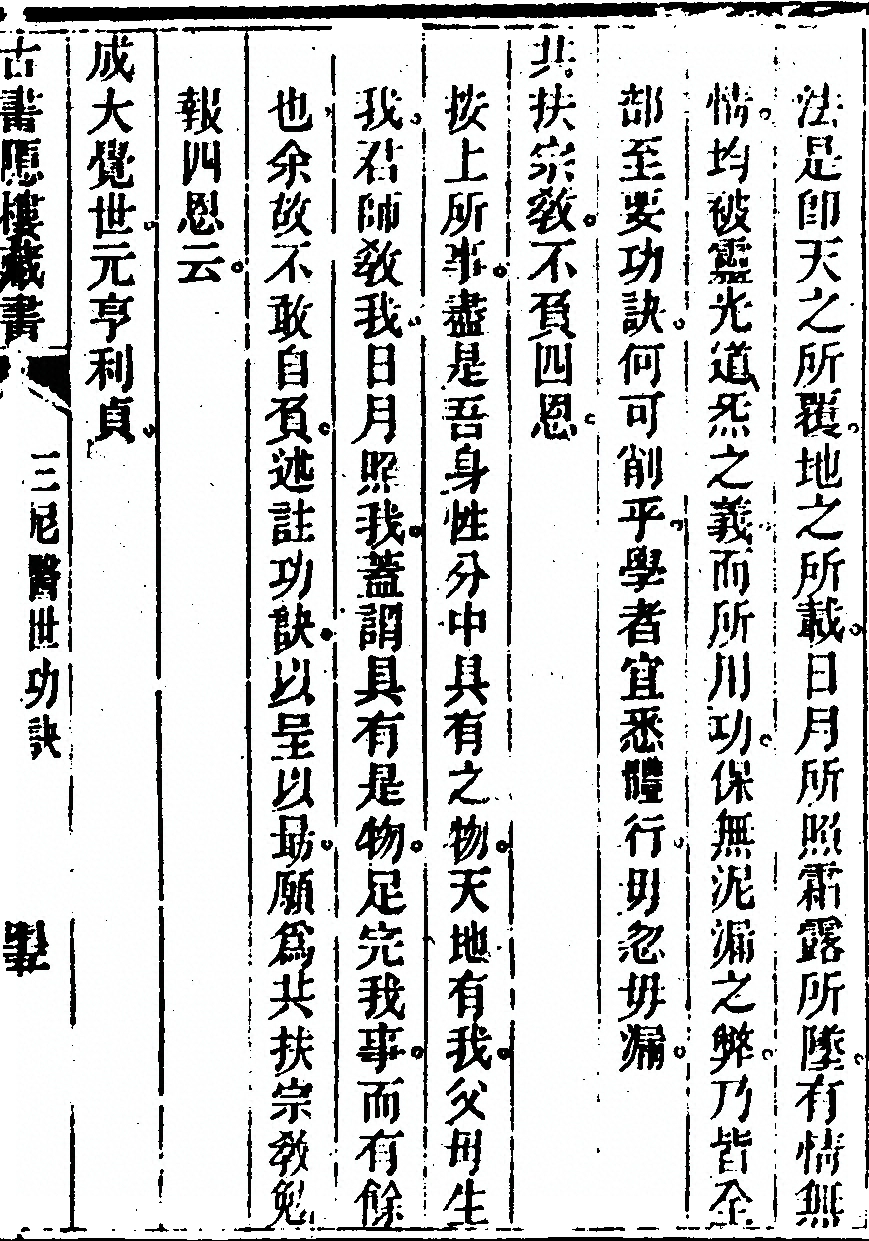 法是卽天之所覆地之所載日月所照霜露所墜有情無
情均被靈光道炁之義而所用功保無泥漏之弊乃皆全
部至要功訣何可削乎學者宜悉體行毋忽毋漏
共扶宗敎不負四恩
按上所事盡是吾身性分中具有之物天地有我父母生
我君師敎我日月照我蓋謂具有是物足完我事而有餘
也余故不敢自負述註功訣以呈以勗願爲共扶宗敎勉
報四恩云
成大覺世元亨利貞
古書隱樓藏書
三尼醫世功訣